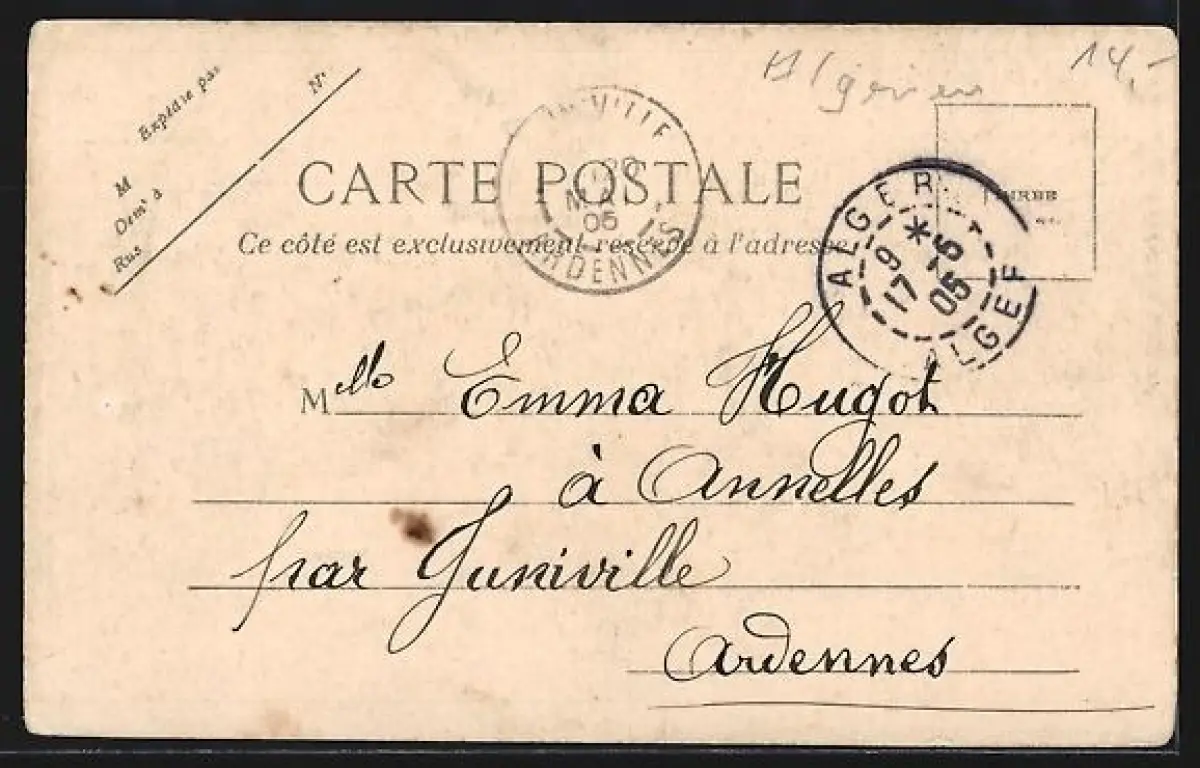 Algerien 14,-
Expédié par
M
Demt à
Rue Nº
CARTE POSTALE
Ce côté est exclusivement réservé à l'adresse
TIMBRE
ALGER
9 * 17 -5 05
ALGER
MAI
05
ARDENNES
Melle Emma Hugot
à Annelles
par Juniville
Ardennes